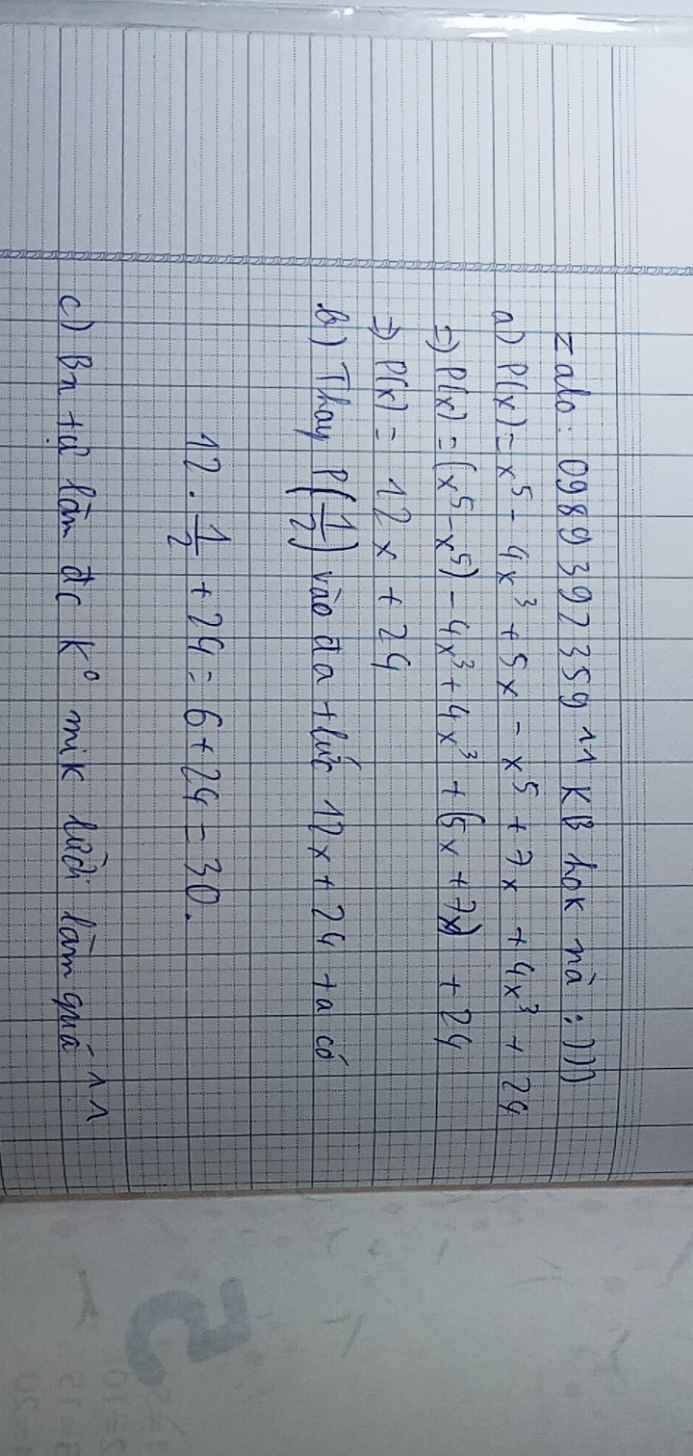 zalo: 0989397359 ^^ KB hok nà :))))
a) P(x) = x⁵ - 4x³ + 5x - x⁵ + 7x + 4x³ + 24
=) P(x) = (x⁵ - x⁵) - 4x³ + 4x³ + (5x + 7x) + 24
=) P(x) = 12x + 24
b) Thay P(1/2) vào đa thức 12x + 24 ta có
12 . 1/2 + 24 = 6 + 24 = 30.
c) Bn tự làm đc k° mik lười làm quá ^^